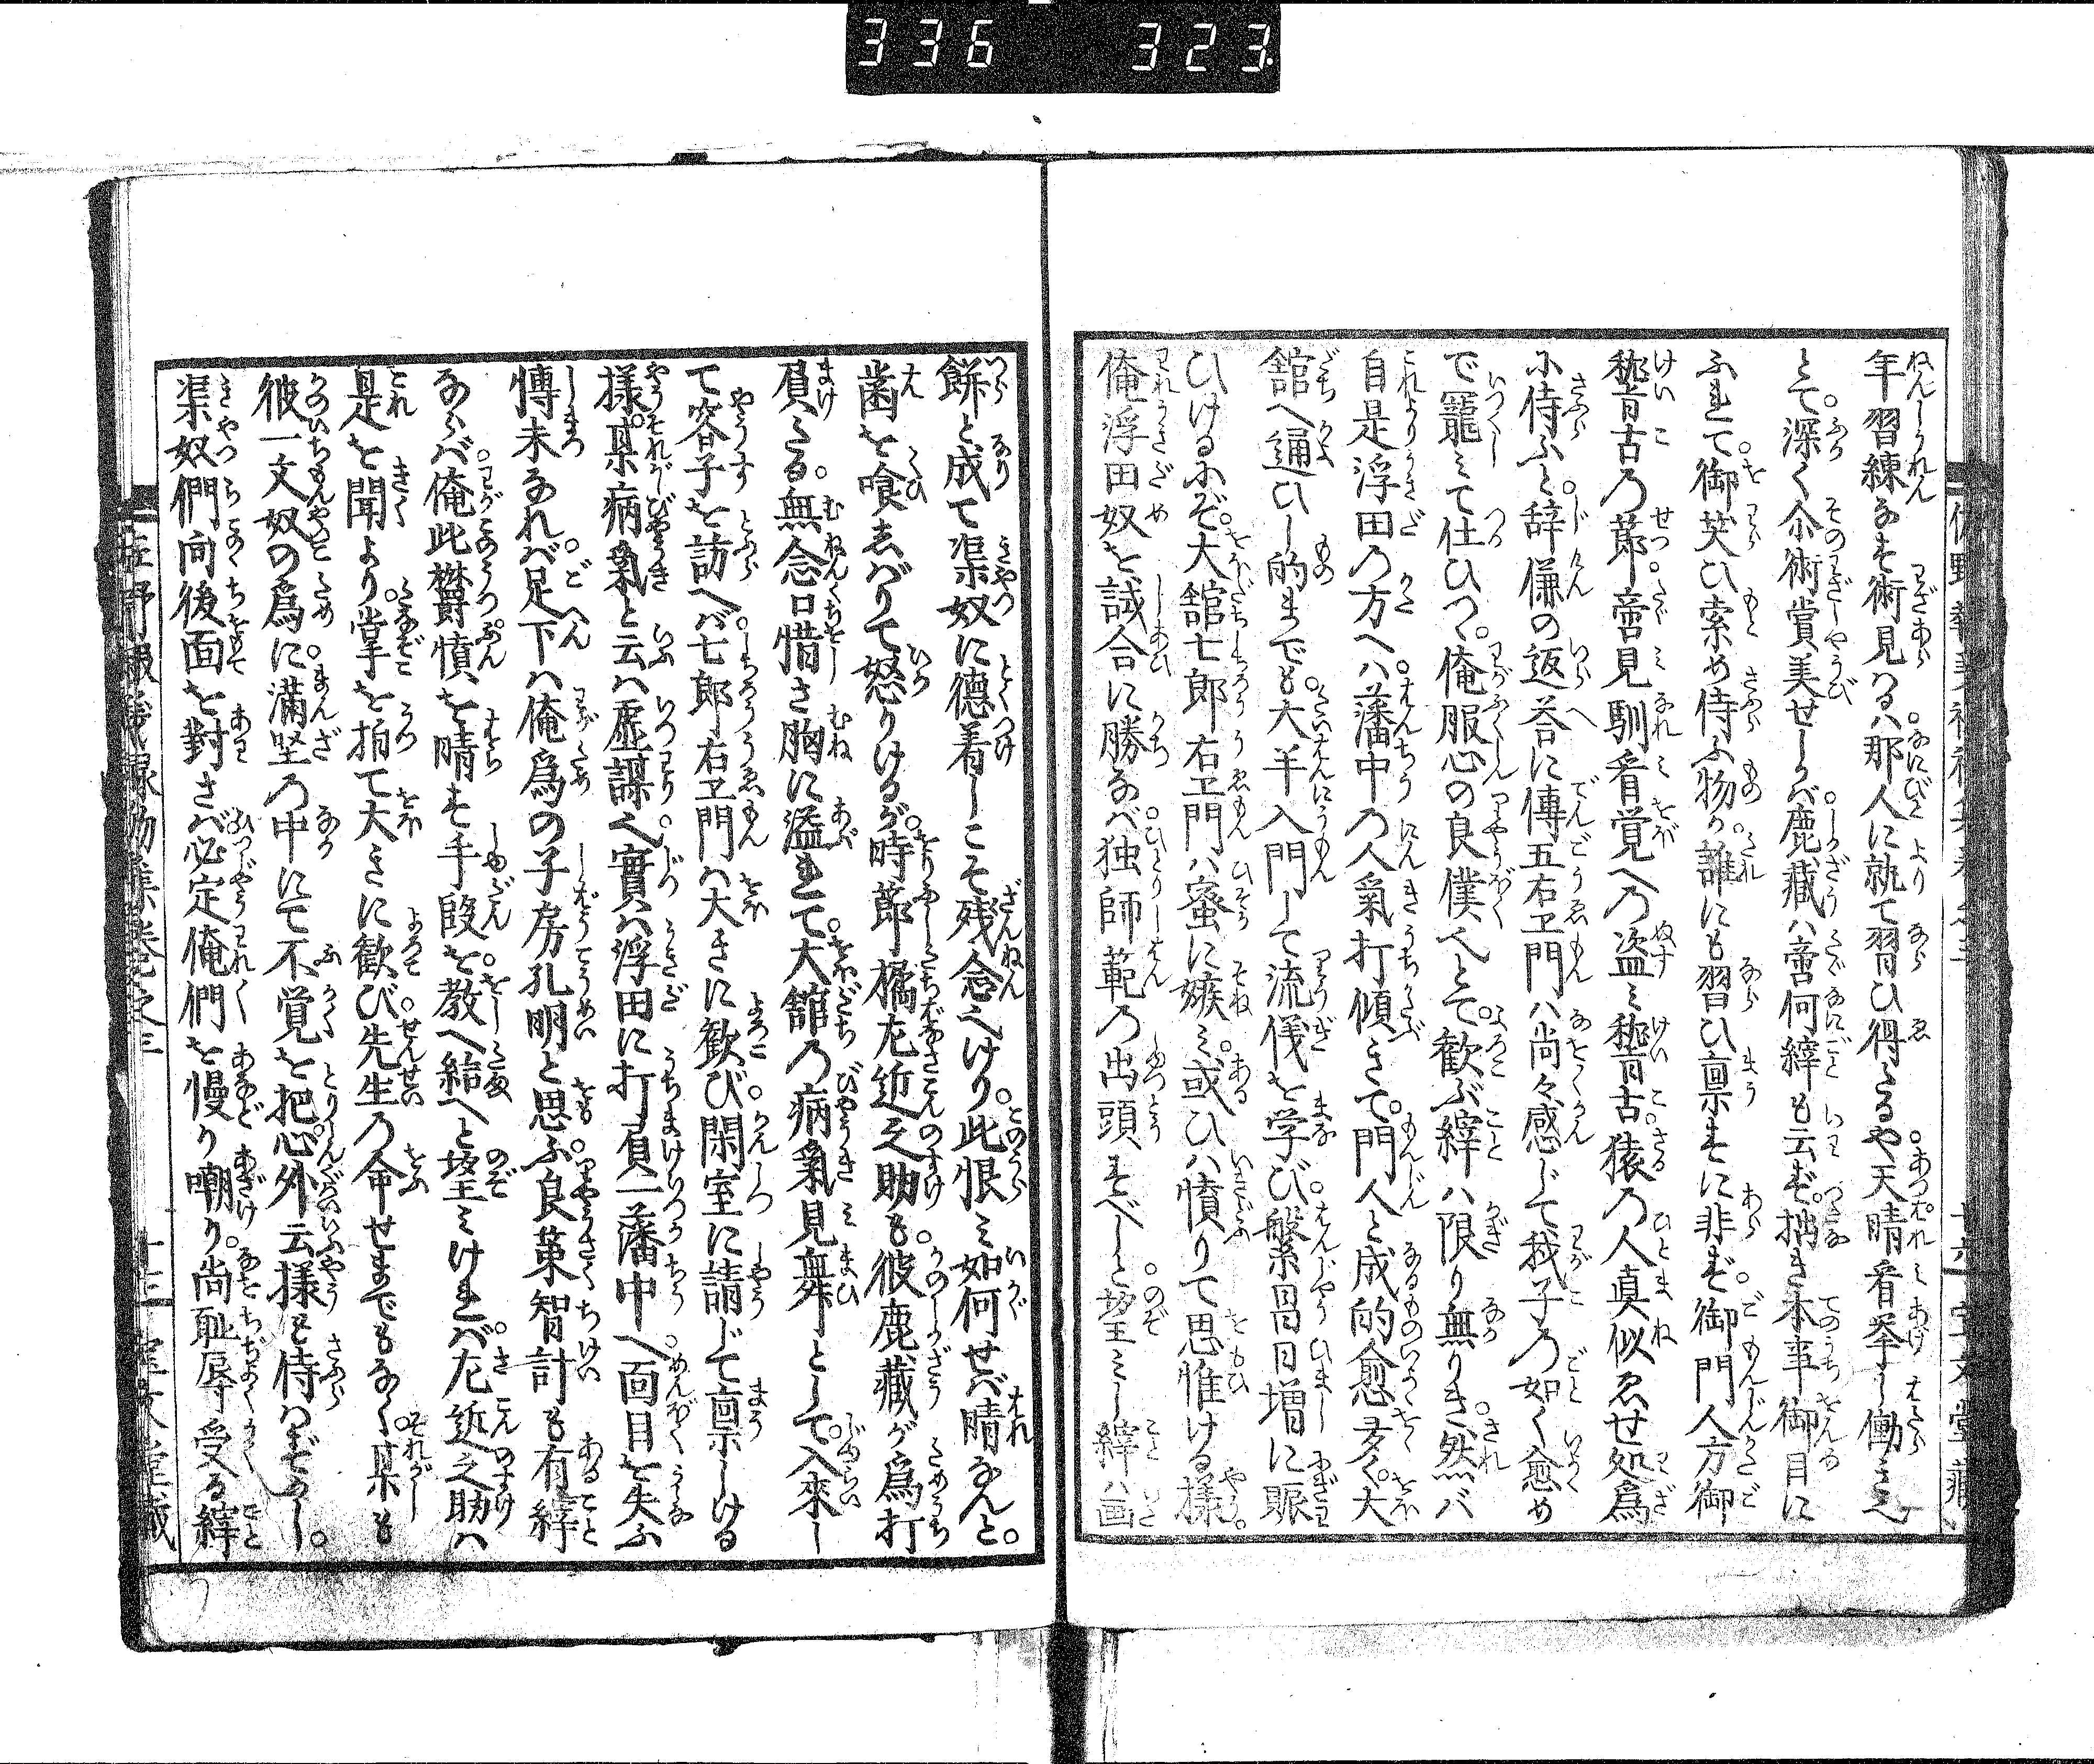 336 323
年習練なす術見るハ那人に執て習ひ得るや天晴看挙し働きへ
とて。深く尒術賞美せしうバ鹿蔵ハ啻何縡も云ず。拙き本事御目に
ふれて。御笑ひ索め侍ふ物う。誰にも習ひ稟すに非ず。御門人方御
稽古乃節。啻見馴看覚へ乃盗ミ稽古。猿乃人真似ゑせ処為
に侍ふと。辞儀の返荅に傳五右衛門ハ尚々感じて我子乃如く愈め
で寵ミて仕ひつ。俺服心の良僕へとて。歓ぶ縡ハ限り無りき。然バ
自是浮田乃方へハ。藩中乃人氣打傾きて。門人と成的愈多く。大
舘へ通ひし的までも。大半入門して流儀を学び。繁昌日増に賑
ひけるにぞ。大舘七郎右衛門ハ蜜に嫉ミ。或ひハ憤りて思惟ける様。
俺浮田奴を試合に勝なバ独師範乃出頭すべしと。望ミし縡ハ画
餅と成て渠奴に德着しこそ残念へけり。此恨ミ如何せバ晴なんと。
歯を喰ゑバりて怒りけるが。時節橘左近之助も。彼鹿蔵が為打
負くる。無念口惜さ胸に溢れて。大舘乃病氣見舞として。入來し
て容子を訪へバ。七郎右衛門ハ大きに歓び。閑室に請じて稟しける
様。某病氣と云ハ虚謀へ。實ハ浮田に打負一藩中へ面目を失ふ
慱未なれバ。足下ハ俺為の子房孔明と思ふ。良策智計も有縡
ならバ。俺此欝憤を晴す手段を。教へ結へと望ミけれバ。左近之助ハ
是を聞より。掌を拍て大きに歓び。先生乃命せまでもなく。某も
彼一文奴の為に。満坐乃中にて不覚を把。心外云様も侍ハずかし。
渠奴們向後面を對さバ。必定俺們を慢り嘲り。尚耻辱受る縡